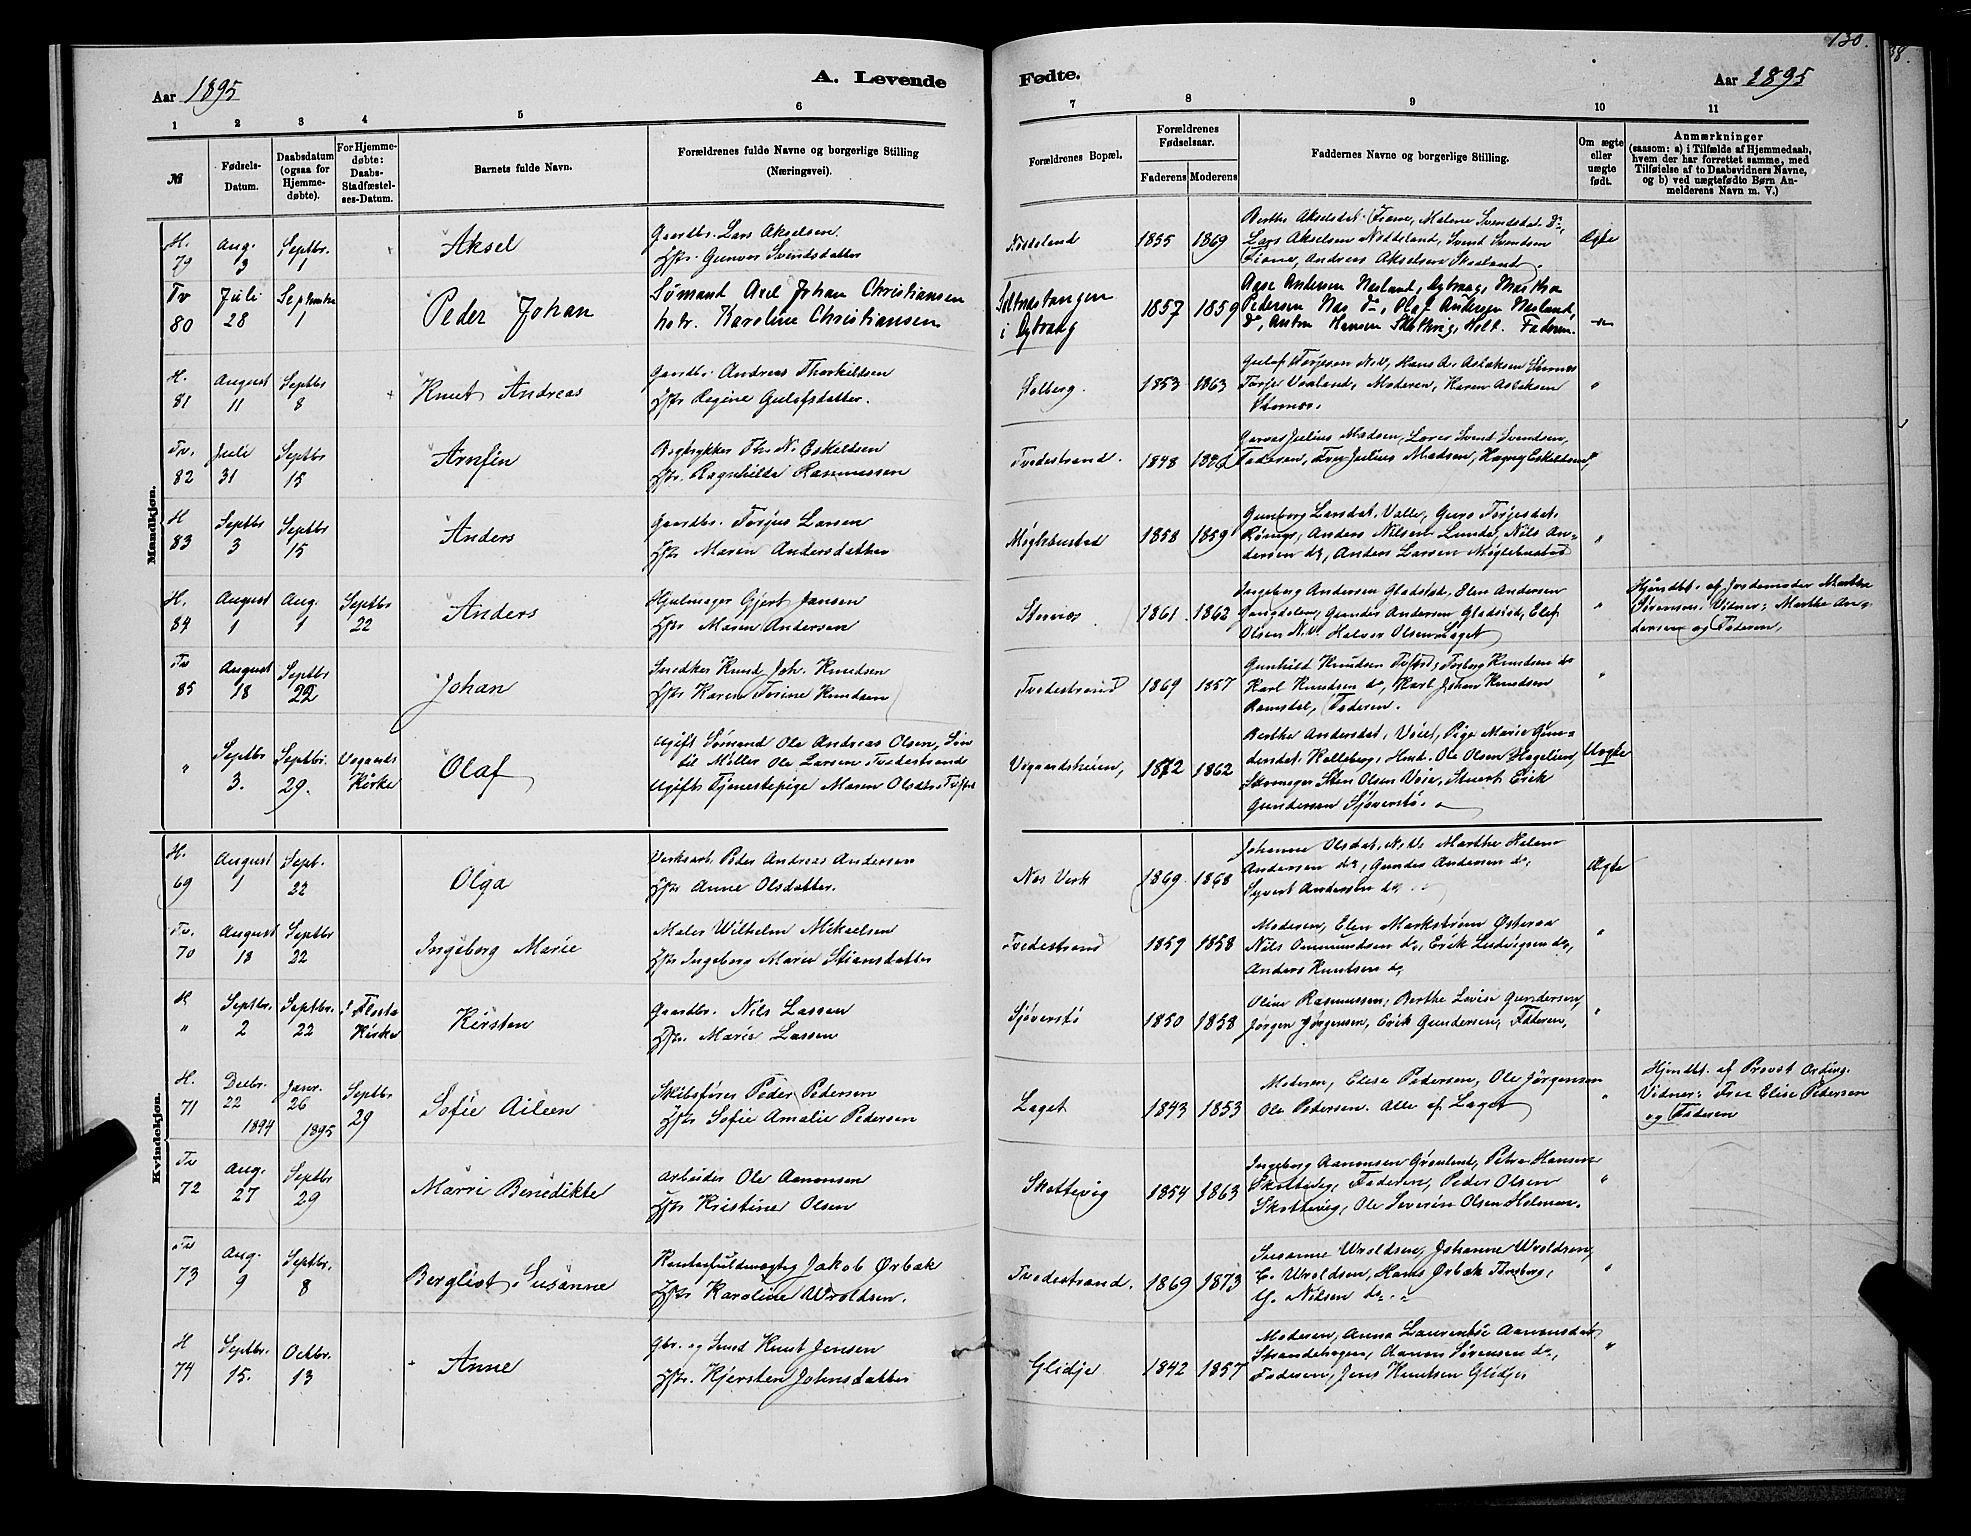 130.
A. Levende Fødte.
Aar 1895
Aar 1895
1 2 3 4 5 6 7 8 9 10 11
№
Fødsels-
Datum.
Daabsdatum
(ogsaa for
Hjemme-
døbte).
For Hjemme-
døbte:
Daabs-
Stadfæstel-
ses-Datum.
Barnets fulde Navn.
Forældrenes fulde Navne og borgerlige Stilling
(Næringsvei).
Forældrenes Bopæl.
Forældrenes
Fødselsaar.
Faderens Moderens
Faddernes Navne og borgerlige Stilling.
Om ægte
eller
uægte
født.
Anmærkninger
(saasom: a) i Tilfælde af Hjemmedaab,
hvem der har forrettet samme, med
Tilføielse af to Daabsvidners Navne,
og b) ved uægtefødte Børn An-
melderens Navn m. V.)
Mandkjøn.
H. 79
Aug. 3
Septbr. 1
Aksel
Gaardbr. Lars Akselsen
Hst. Gunvor Svendsdatter
1855 1869
Berthe Akselsdat. Fiane, Malene Svendsdat. do,
Lars Akselsen Nøddeland, Svend Svendsen
Fiane, Andreas Akselsen Skaaland
Ægte
Tv 80
Juli 28
Septembr 1
Peder Johan
Sømand Axel Johan Christiansen
hstr. Karoline Christiansen
i Dybvaag
1857 1859
Aase Andersen Nesland, Dybvaag, Martha
Pedersen Næs do, Olaf Andersen Nesland,
do, Anton Hansen Skottevig, Holt. Faderen.
H. 81
August 11
Septbr 8
Knut Andreas
Gaardbr. Andreas Thorkildsen
Hst Regine Gulofsdatter.
Solberg.
1853 1863
Vaaland, Moderen, Karen Aslaksen
Stornes.
Tv. 82
Juli 31
Septbr 15
Arnfin
Bogtrykker Th. N. Eskeldsen
Hst. Ragnhilda Rasmussen
Tvedestrand.
1848
Julius Madsen, Svend Svendsen,
Faderen, Fru Julius Madsen, Hagny Eskeldsen
H 83
Septbr 3
Septbr 15
Anders
Gaardbr. Torjus Larsen
Hst Maren Andersdatter
Møglebustad
1858 1859
Gunborg Larsdat. Valle, Guro Torjesdat.
Anders Nilsen Lunde, Nils An-
dersen do, Anders Larsen Møglebustad
H. 84
August 1
Aug. 1
Septbr 22
Anders
Hjulmager Gjert Jansen
Hst Maren Andersen
Stornes
1861 1862
Ingeborg Andersen Gladstad, Elen Andersen
Gunder Andersen Gladstad, Elef
Olsen N.V. Halvor Olsen Laget
Hjemdbt. af Jordemoder Marthe
Sørensen. Vidner: Marthe An-
dersen og Faderen,
Tv 85
August 18
Septbr 22
Johan
Snedker Knud Joh. Knudsen
Hst Karen Torine Knudsen
Tvedestrand
1869 1857
Gunhild Knudsen, Torborg Knudsen do
Karl Knudsen do, Karl Johan Knudsen
Ramsdal, Faderen.
"
Septbr 3.
Septbr. 29.
Vegaards Kirke
Olaf
Ugift Sømand Ole Andreas Olsen, Søn
til Møller Ole Larsen Tvedestrand
Ugift Tjenestepige Maren Olsdtr.
Vegaardsheien,
1872 1862
Berthe Andersdat. Pige Marie Gun-
dersdat. Ole Olsen Hagelien,
Skomager Sten Olsen Erik
Gundersen Sjøverstø.
Uægte
Kvindekjøn.
H. 69
August 1
Sept. 22
Olga
Verksarb. Peder Andreas Andersen
Hst Anne Olsdatter.
Næs Verk
1869 1868
Johanne Olsdat. N.V. Marthe Helene
Andersen do, Gunder Andersen do,
Syvert Andersen do
Ægte
Tv. 70
August 13
Septbr 22
Ingeborg Marie
Maler Wilhelm Mikaelsen
Hst Ingeborg Marie Stiansdatter
Tvedestrand
1859 1858
Moderen, Elen Markstrøm Østeraa
Nils Ommundsen do, Erik Ludvigsen do,
Anders Knutsen do
H "
Septbr. 2
Septbr. 22
I Flosta Kirke
Kirsten
Gaardbr. Nils Lassen
Hst. Marie Lassen
Sjøverstø
1850 1858
Oline Rasmussen, Berthe Lovise Gundersen,
Jørgen Jørgensen, Erik Gundersen, Faderen,
H. 71
Decbr. 22 1894
Janr. 26 1895
Septbr 29
Sofie Aileen
Skibsfører Peder Pedersen
Hst Sofie Amalie Pedersen
Laget
1843 1853
Moderen, Elise Pedersen, Ole Jørgensen
Ole Pedersen. Alle af Laget
Hjemdbt. af Provst Arding.
Vidner: Frue Elise Pedersen
og Faderen
Tv 72
Aug. 27
Septbr 29
Marri Benedikte
Arbeider Ole Aanonsen
Hst Kristine Olsen
Skottevig
1854 1863
Ingeborg Aanonsen Grønlund, Petra Hansen
Skottevig, Faderen, Peder Olsen
Skottevig, Ole Severin Olsen Holmen.
Tv 73
Aug. 9
Septbr. 8
Bergliot Susanne
Kontorfuldmægtig Jakob Ørbæk
Hst Karoline Wroldsen.
Tvedestrand.
1869 1873
Susanne Wroldsen, Johanne Wroldsen,
C. Wroldsen, Hans Ørbæk Tønsberg,
Nilsen do.
H 74
Septbr. 15.
Octbr. 13
Anne
Gbr. og Smed Knut Jensen
Hst. Kjersten Johnsdatter
Glidje
1842 1857
Moderen, Anna Laurentse Aanonsdat
Strandehagen, Aanon Sørensen do,
Faderen, Jens Knutsen Glidje